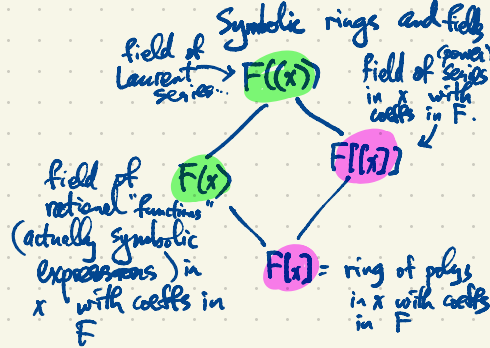 Symbolic rings and fields
field of
Laurent
series...
F((x))
field of (power) series
in x with
coeffs in F.
F(x)
F[[x]]
field of
rational "functions"
(actually symbolic
expressions) in
x with coeffs in
F
F[x] = ring of polys
in x with coeffs
in F